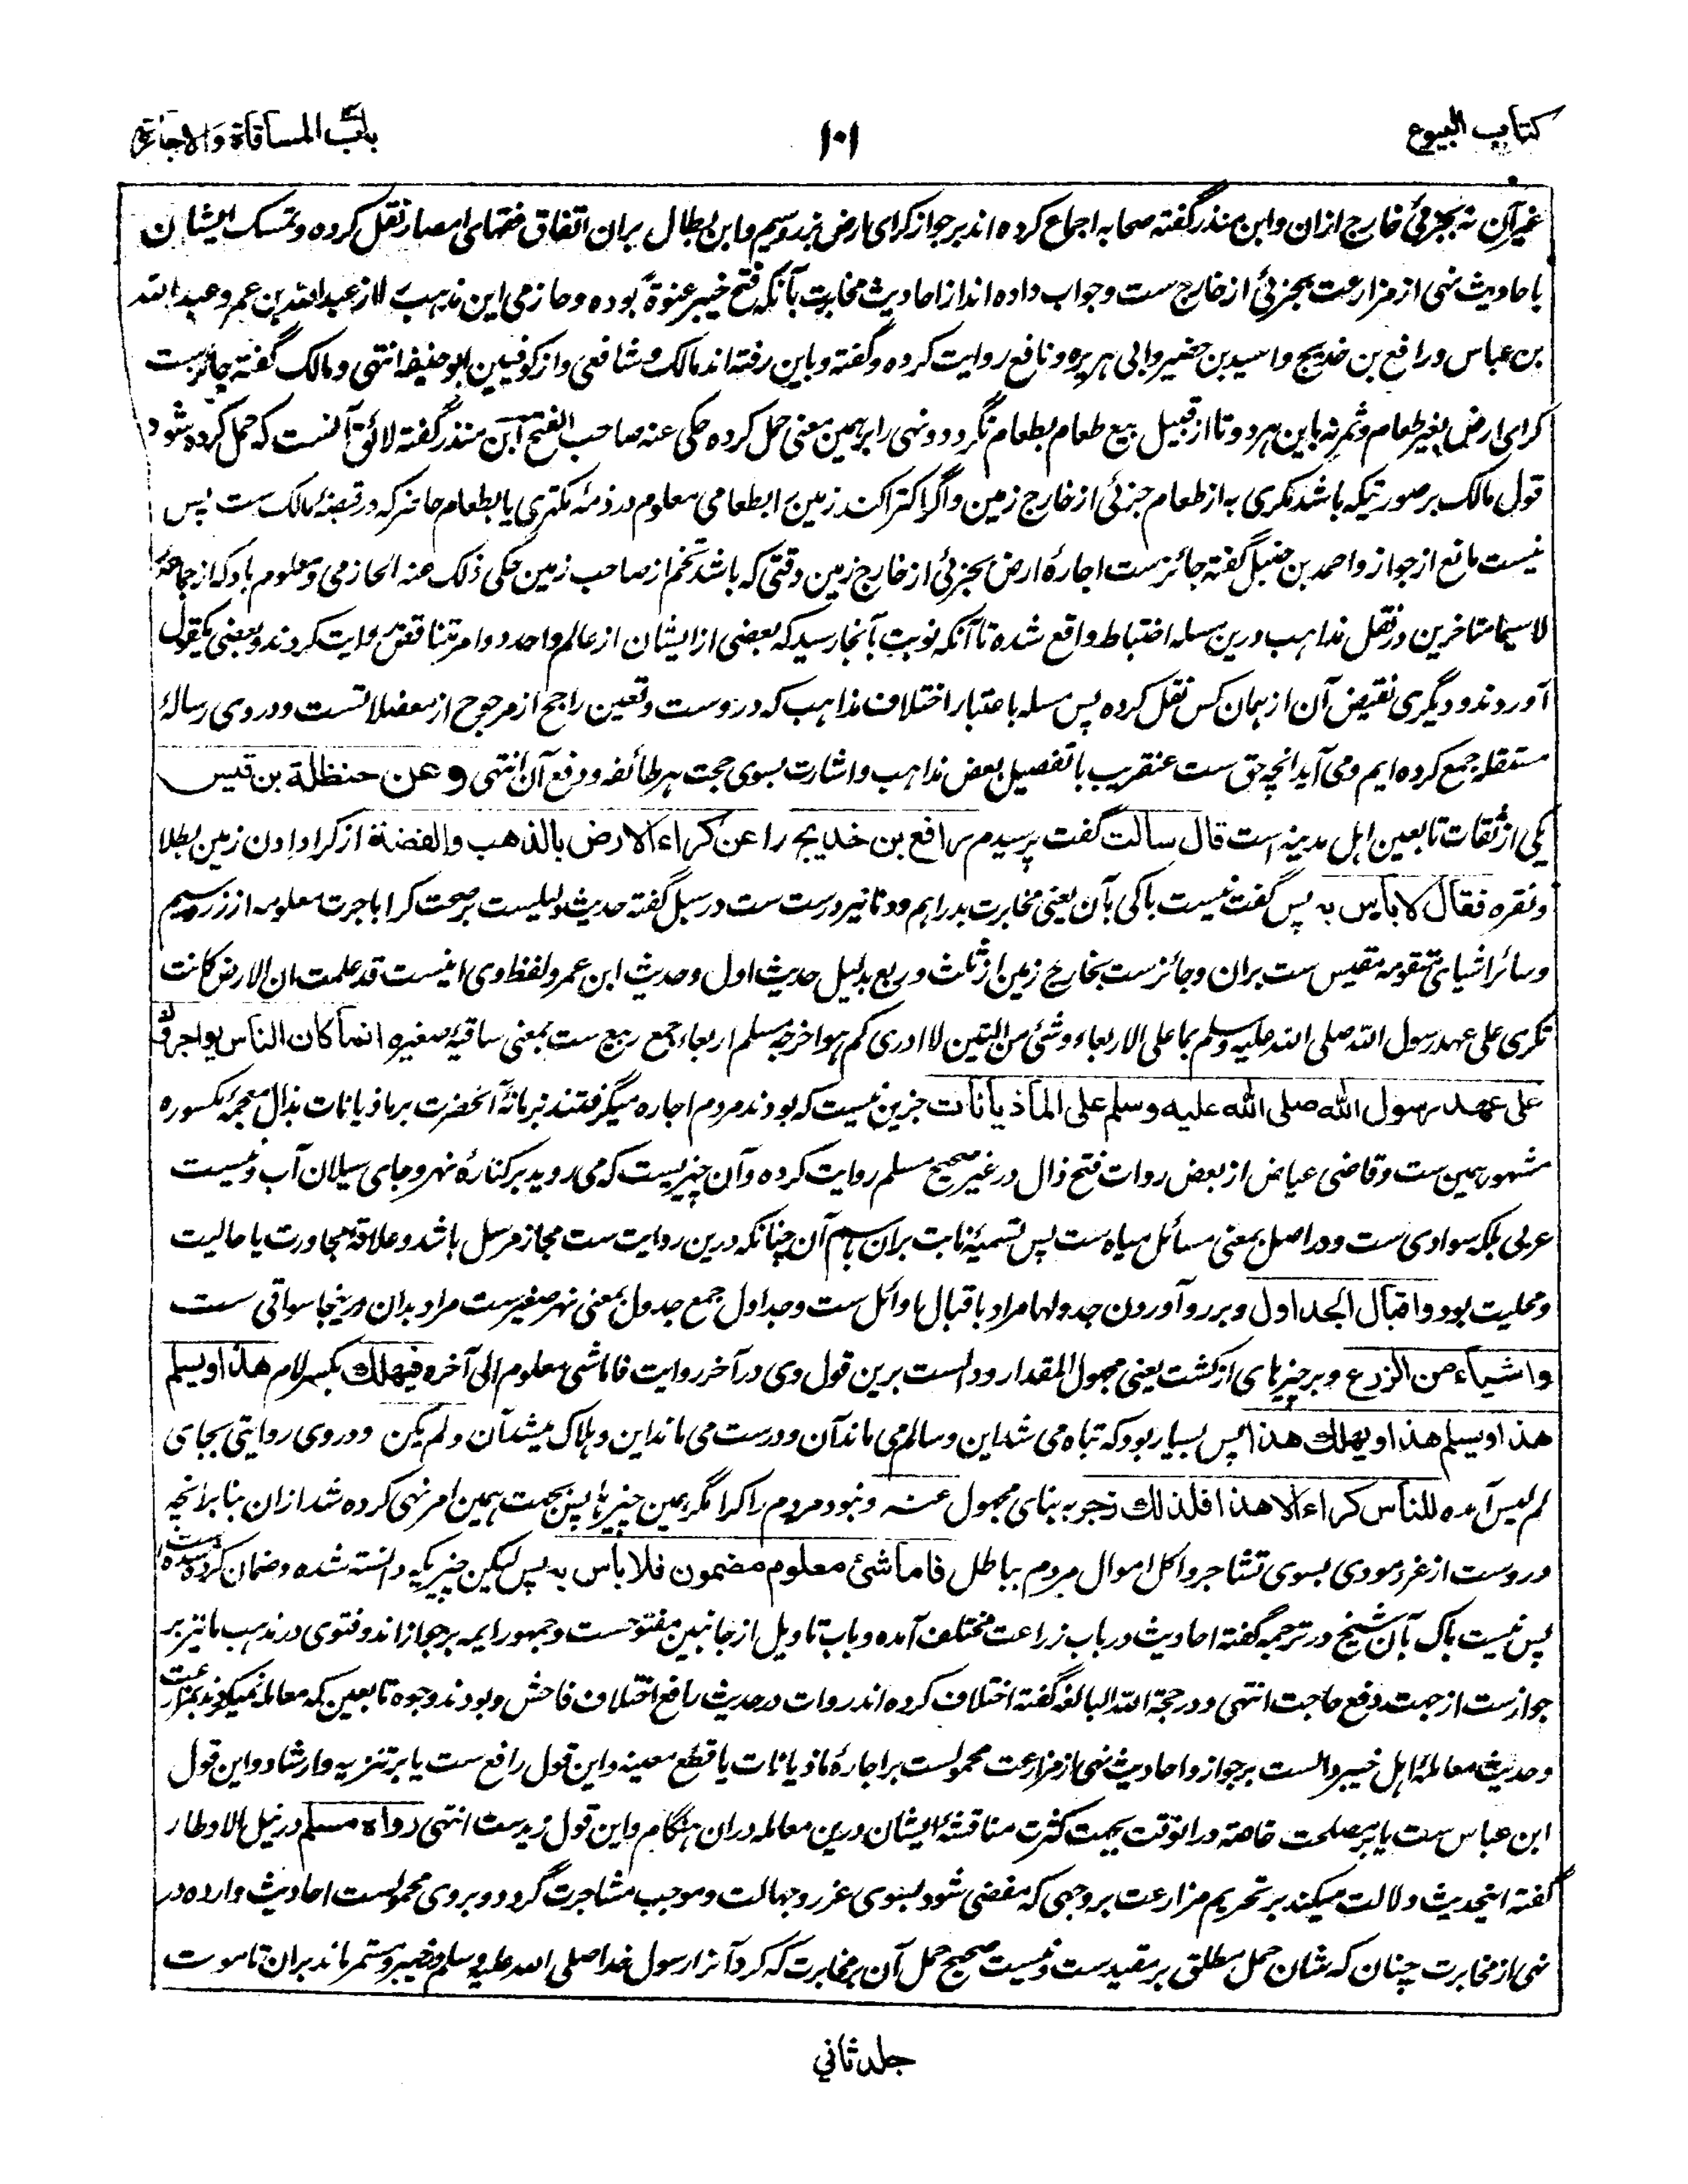 کتاب البیوع
۱۰۱
باب المساقاة والاجارة
غیر آن نه بجزئی خارج ازان وابن منذر گفته صحابه اجماع کرده اند بر جواز کرای ارض بزر وسیم وابن بطال بران اتفاق فقهای امصار نقل کرده وتمسک ایشان
باحادیث نهی از مزارعت بجزئی از خارج ست وجواب داده اند از احادیث مخابرت بآنکه فتح خیبر عنوةً بوده وحازمی این مذهب را از عبدالله بن عمر وعبدالله
بن عباس ورافع بن خدیج واسید بن حضیر وابی هریره ونافع روایت کرده وگفته وباین رفته اند مالک وشافعی واز کوفیین ابوحنیفه انتهی ومالک گفته جائز ست
کرای ارض بغیر طعام وثمر نه باین هر دو تا از قبیل بیع طعام بطعام نگردد ونهی را برهمین معنی حمل کرده حکی عنه صاحب الفتح ابن منذر گفته لائق آنست که حمل کرده شود
قول مالک بر صورتیکه باشد مکری به از طعام جزئی از خارج زمین واگر اکترا کند زمین را بطعامی معلوم در ذمهٔ مکتری یا بطعام حاضر که در قبضهٔ مالک ست پس
نیست مانع از جواز واحمد بن حنبل گفته جائز ست اجارهٔ ارض بجزئی از خارج زمین وقتی که باشد تخم از صاحب زمین حکی ذلک عنه الحازمی ومعلوم باد که از جماعهٔ
لاسیما متاخرین در نقل مذاهب درین مسله اختباط واقع شده تا آنکه نوبت بآنجا رسید که بعضی از ایشان از عالم واحد دو امر متناقض روایت کردند وبعضی یکقول
آوردند ودیگری نقیض آن از همان کس نقل کرده پس مسله باعتبار اختلاف مذاهب که دروست وتعین راجح از مرجوح از معضلاتست ودر وی رسالهٔ
مستقله جمع کرده ایم ومی آید آنچه حق ست عنقریب با تفصیل بعض مذاهب واشارت بسوی حجت هر طائفه ودفع آن انتهی وعن حنظلة بن قیس
یکی از ثقات تابعین اهل مدینه است قال سالت گفت پرسیدم رافع بن خدیج را عن کراء الارض بالذهب والفضة از کرا دادن زمین بطلا
ونقره فقال لا باس به پس گفت نیست باکی بآن یعنی مخابرت بدراهم ودنانیر درست ست در سبل گفته حدیث دلیلست بر صحت کرا باجرت معلومه از زر وسیم
وسائر اشیای متقومه مقیس ست بران وجائز ست بخارج زمین از ثلث وربع بدلیل حدیث اول وحدیث ابن عمر ولفظ وی اینست قد علمت ان الارض کانت
تکری علی عهد رسول الله صلی الله علیه وسلم بما علی الاربعاء وشئ من التبن لا ادری کم هو اخرجه مسلم اربعاء جمع ربیع ست بمعنی ساقیهٔ صغیره انما کان الناس یواجرون
علی عهد رسول الله صلی الله علیه وسلم علی الماذیانات جزین نیست که بودند مردم اجاره میگرفتند بزمانهٔ آنحضرت بر ماذیانات بذال معجمهٔ مکسوره
مشهور همین ست وقاضی عیاض از بعض روات فتح ذال در غیر صحیح مسلم روایت کرده وآن چیزیست که می روید بر کنارهٔ نهر وجای سیلان آب ونیست
عربی بلکه سوادی ست ودر اصل بمعنی مسائل میاه ست پس تسمیهٔ نابت بران باسم آن چنانکه درین روایت ست مجاز مرسل باشد وعلاقهٔ مجاورت یا حالیت
ومحلیت بود واقبال الجداول وبر رو آوردن جدولها مراد باقبال اوائل ست وجداول جمع جدول بمعنی نهر صغیر ست مراد بدان درینجا سواقی ست
واشیاء من الزرع وبر چیزهای از کشت یعنی مجهول المقدار ودالست برین قول وی در آخر روایت فاما شئ معلوم الی آخره فیهلک بکسر لام هذا ویسلم
هذا ویسلم هذا ویهلک هذا پس بسیار بود که تباه می شد این وسالم می ماند آن ودرست می ماند این وهلاک میشد آن ولم یکن ودر وی روایتی بجای
لم لیس آمده للناس کراء الا هذا فلذلک زجر به بنای مجهول عنه ونبود مردم را کرا مگر همین چیزها پس بجهت همین امر نهی کرده شد ازان بنا برانچه
دروست از غرر مودی بسوی تشاجر واکل اموال مردم بباطل فاما شئ معلوم مضمون فلا باس به پس لیکن چیزیکه دانسته شده وضمان کرده شده است
پس نیست باک بآن شیخ در ترجمه گفته احادیث در باب زراعت مختلف آمده وباب تاویل از جانبین مفتوحست وجمهور ایمه بر جواز اند وفتوی در مذهب ما نیز بر
جواز ست از جهت دفع حاجت انتهی ودر حجة الله البالغه گفته اختلاف کرده اند روات در حدیث رافع اختلاف فاحش وبودند وجوه تابعین که معامله میکردند بمزارعت
وحدیث معاملهٔ اهل خیبر دالست بر جواز واحادیث نهی از مزارعت محمولست بر اجارهٔ ماذیانات یا قطع معینه واین قول رافع ست یا بر تنزیه وارشاد واین قول
ابن عباس ست یا بر مصلحت خاصه دران وقت بجهت کثرت مناقشهٔ ایشان درین معامله دران هنگام واین قول زید ست انتهی رواه مسلم در نیل الاوطار
گفته اینحدیث دلالت میکند بر تحریم مزارعت بر وجهی که مفضی شود بسوی غرر وجهالت وموجب مشاجرت گردد وبر وی محمولست احادیث وارده در
نهی از مخابرت چنان که شان حمل مطلق بر مقید ست ونیست صحیح حمل آن بر مخابرت که کرد آنرا رسول خدا صلی الله علیه وسلم در خیبر ومستمر ماند بران تا موت
جلد ثانی